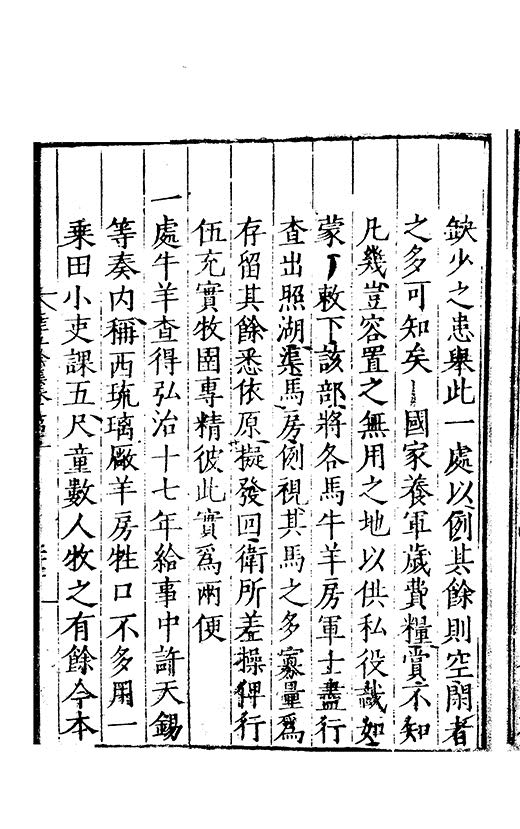 缺少之患舉此一處以例其餘則空閑者
之多可知矣國家養軍歲費糧賞不知
凡幾豈容置之無用之地以供私役誠如
蒙敕下該部將各馬牛羊房軍士盡行
查出照湖渠馬房例視其馬之多寡量爲
存留其餘悉依原擬發回衛所差操俾行
伍充實牧圉專精彼此實爲兩便
一處牛羊查得弘治十七年給事中許天錫
等奏內稱西琉璃廠羊房牲口不多用一
乘田小吏課五尺童數人牧之有餘今本